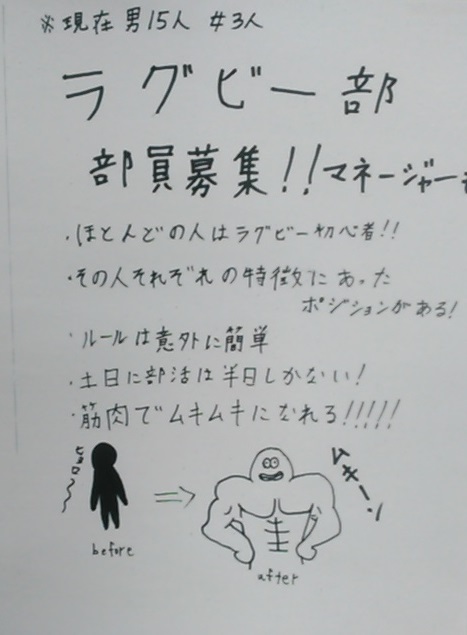 ※現在 男15人 女3人
ラグビー部
部員募集!!マネージャー
・ほとんどの人はラグビー初心者!!
・その人それぞれの特徴にあった
ポジションがある!
・ルールは意外に簡単
・土日に部活は半日しかない!
・筋肉でムキムキになれる!!!!!
ヒョロ〜
ムキーン
before
after